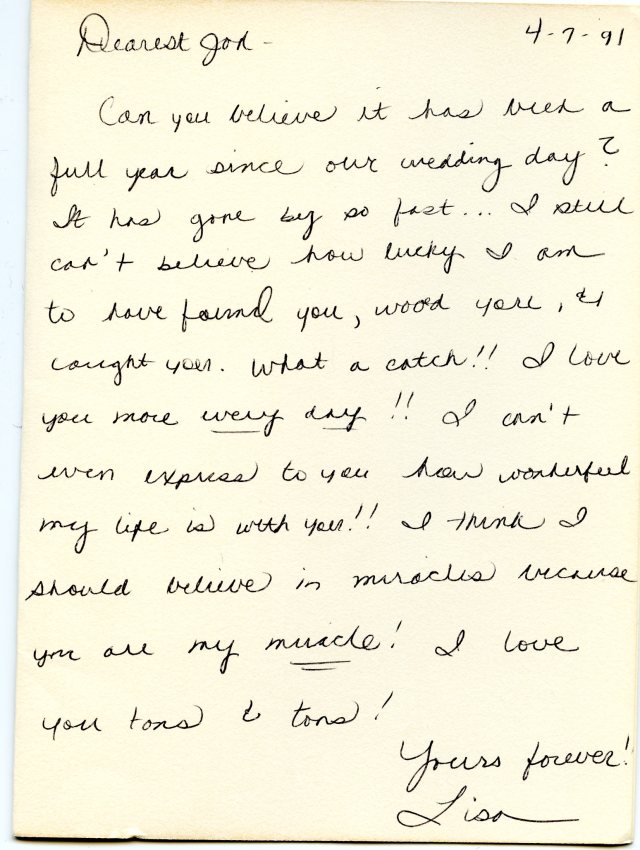 Dearest Jon - 4-7-91
Can you believe it has been a
full year since our wedding day?
It has gone by so fast... I still
can't believe how lucky I am
to have found you, wooed you, &
caught you. What a catch!! I love
you more every day!! I can't
even express to you how wonderful
my life is with you!! I think I
should believe in miracles because
you are my miracle! I love
you tons & tons!
Yours forever!
Lisa